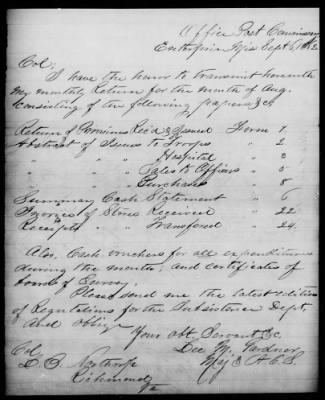 Office Post Commissary
Enterprise Miss Sept 6, 1862
Col.
I have the honor to transmit herewith
my monthly Return for the month of Aug.
consisting of the following papers &c
Return of Provisions Rec'd & Issued Form 1.
Abstract of Issues to Troops " 2
" " " Hospital " 3
" " Sales to Officers " 5
" " Purchases " 8
Summary Cash Statement " 6
Invoices of Stores Received " 22
Receipts " " Transfered " 24.
Also, Cash vouchers for all expenditures
during the month, and certificates of
boards of Survey.
Please send me the latest edition
of Regulations for the Subsistence Dept,
and oblige
Your obt. Servant &c.
Gardner
Col Maj & A. C. S.
L. B. Northrop
Richmond
Va